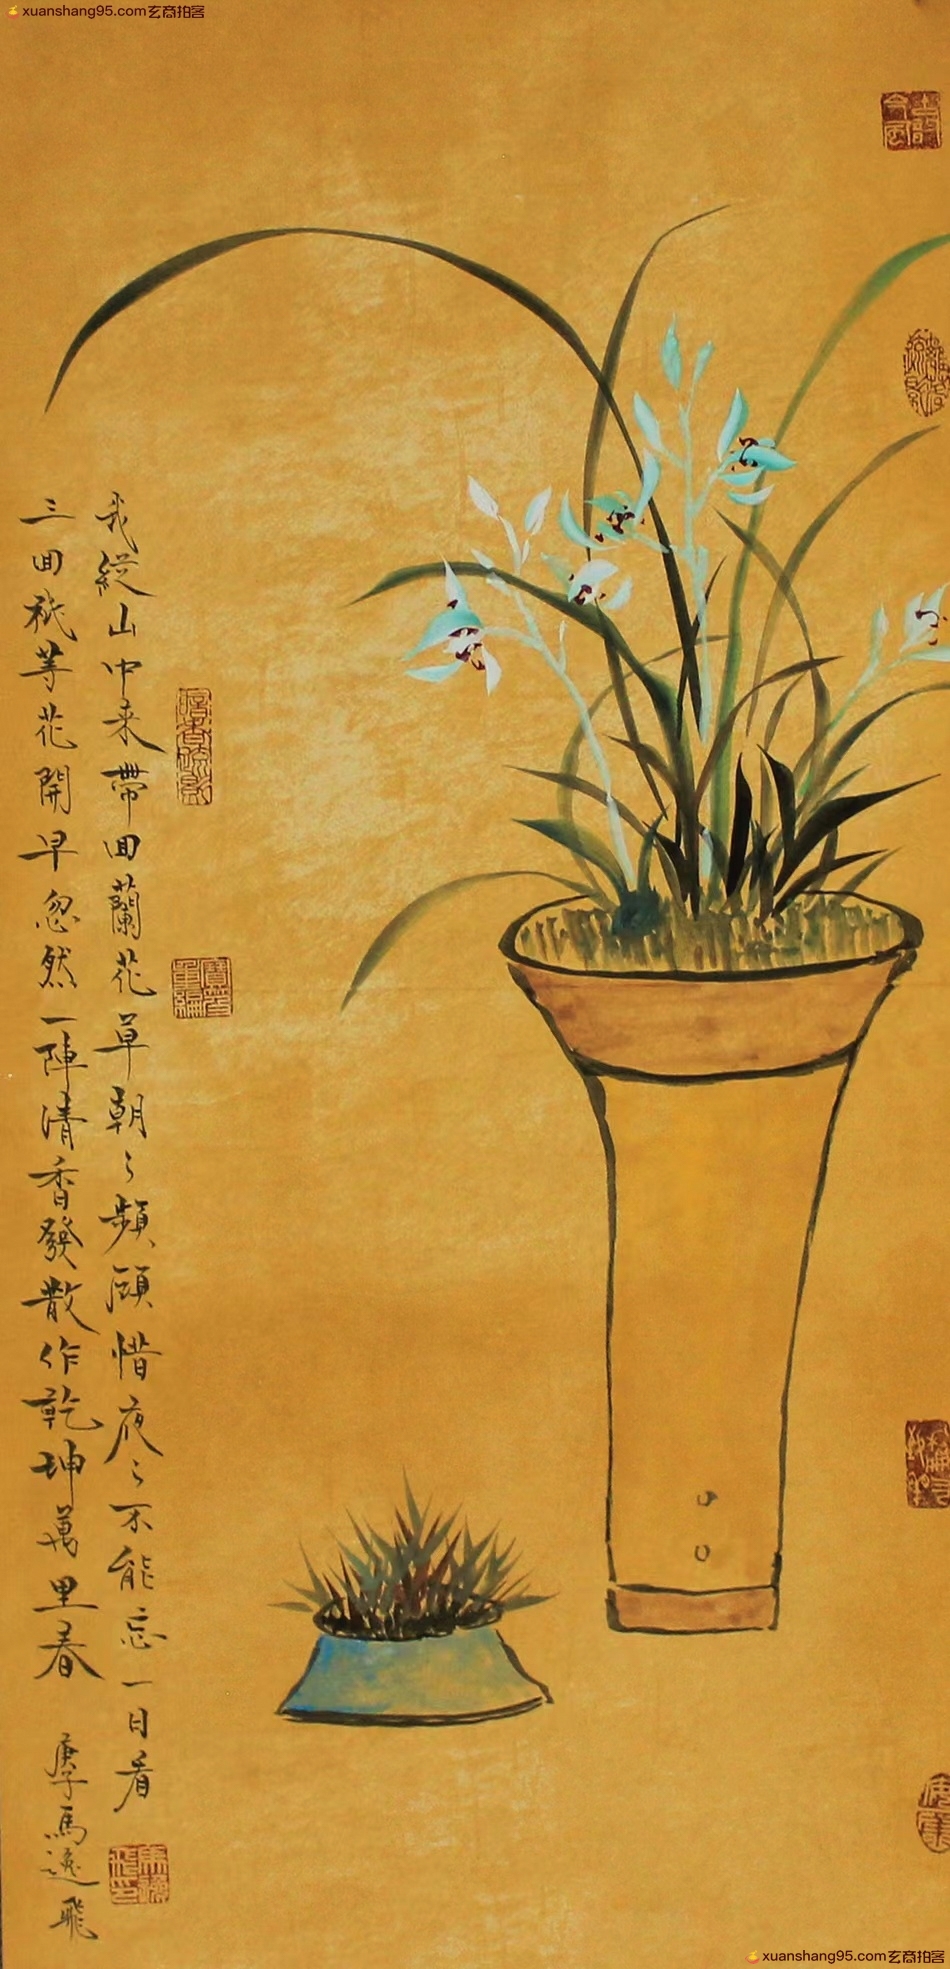 xuanshang95.com玄商拍客
我從山中来帶回蘭花草朝々頻顧惜夜々不能忘一日看
三回祗等花開早忽然一陣清香發散作乾坤萬里春
庚子馬逸飛
暗香疏影
xuanshang95.com玄商拍客